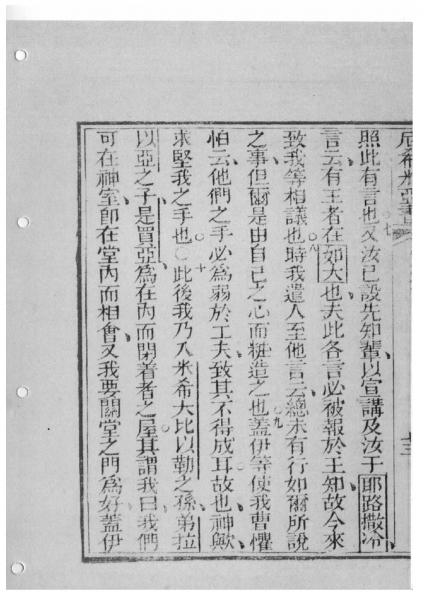 照此有言也○七又汝已設先知輩以宣講及汝于耶路撒冷
言云有王者在如大也夫此各言必被報於王知故今來
致我等相議也○八時我遣人至他言云總未有行如爾所說
之事但爾是由自己之心而粧造之也○九蓋伊等使我曹懼
怕云他們之手必為弱於工夫致其不得成耳故也神歟
求堅我之手也○十此後我乃入米希大比以勒之孫弟拉
以亞之子是買亞為在內而閉着者之屋其謂我曰我們
可在神室即在堂內而相會又我要關堂之門為好蓋伊